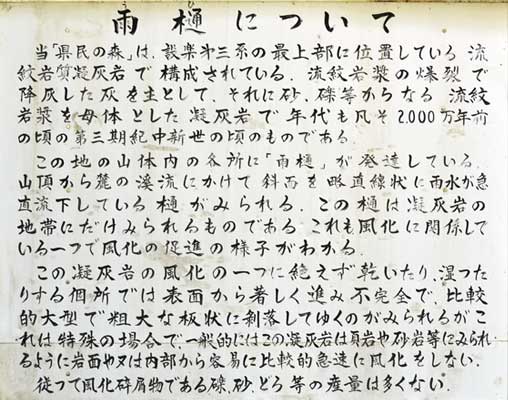 雨樋について
当「県民の森」は、設楽第三系の最上部に位置している 流
紋岩質凝灰岩で構成されている。流紋岩漿の爆裂で
降灰した灰を主として、それに砂、礫等からなる 流紋
岩漿を母体とした凝灰岩で年代も凡そ2.000万年前
の頃の第三期紀中新世の頃のものである
この地の山体内の各所に「雨樋」が発達している。
山頂から麓の渓流にかけて 斜面を略直線状に雨水が急
直流下している樋がみられる。この樋は凝灰岩の
地帯にだけみられるものである。これも風化に関係して
いる一つで風化の促進の様子がわかる。
この凝灰岩の風化の一つに絶えず乾いたり、湿った
りする個所では表面から著しく進み不完全で、比較
的大型で粗大な板状に剥落してゆくのがみられるがこ
れは特殊の場合で、一般的にはこの凝灰岩は頁岩や砂岩等にみられ
るように岩面や又は内部から容易に比較的急速に風化をしない。
従って風化砕屑物である礫、砂、どろ等の産量は多くない。